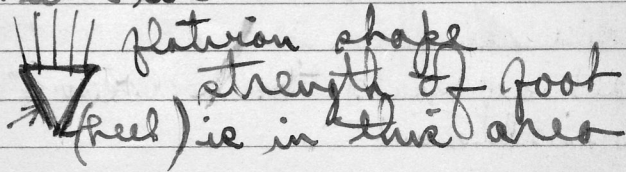 flatiron shape
strength of foot
(heel) is in this area